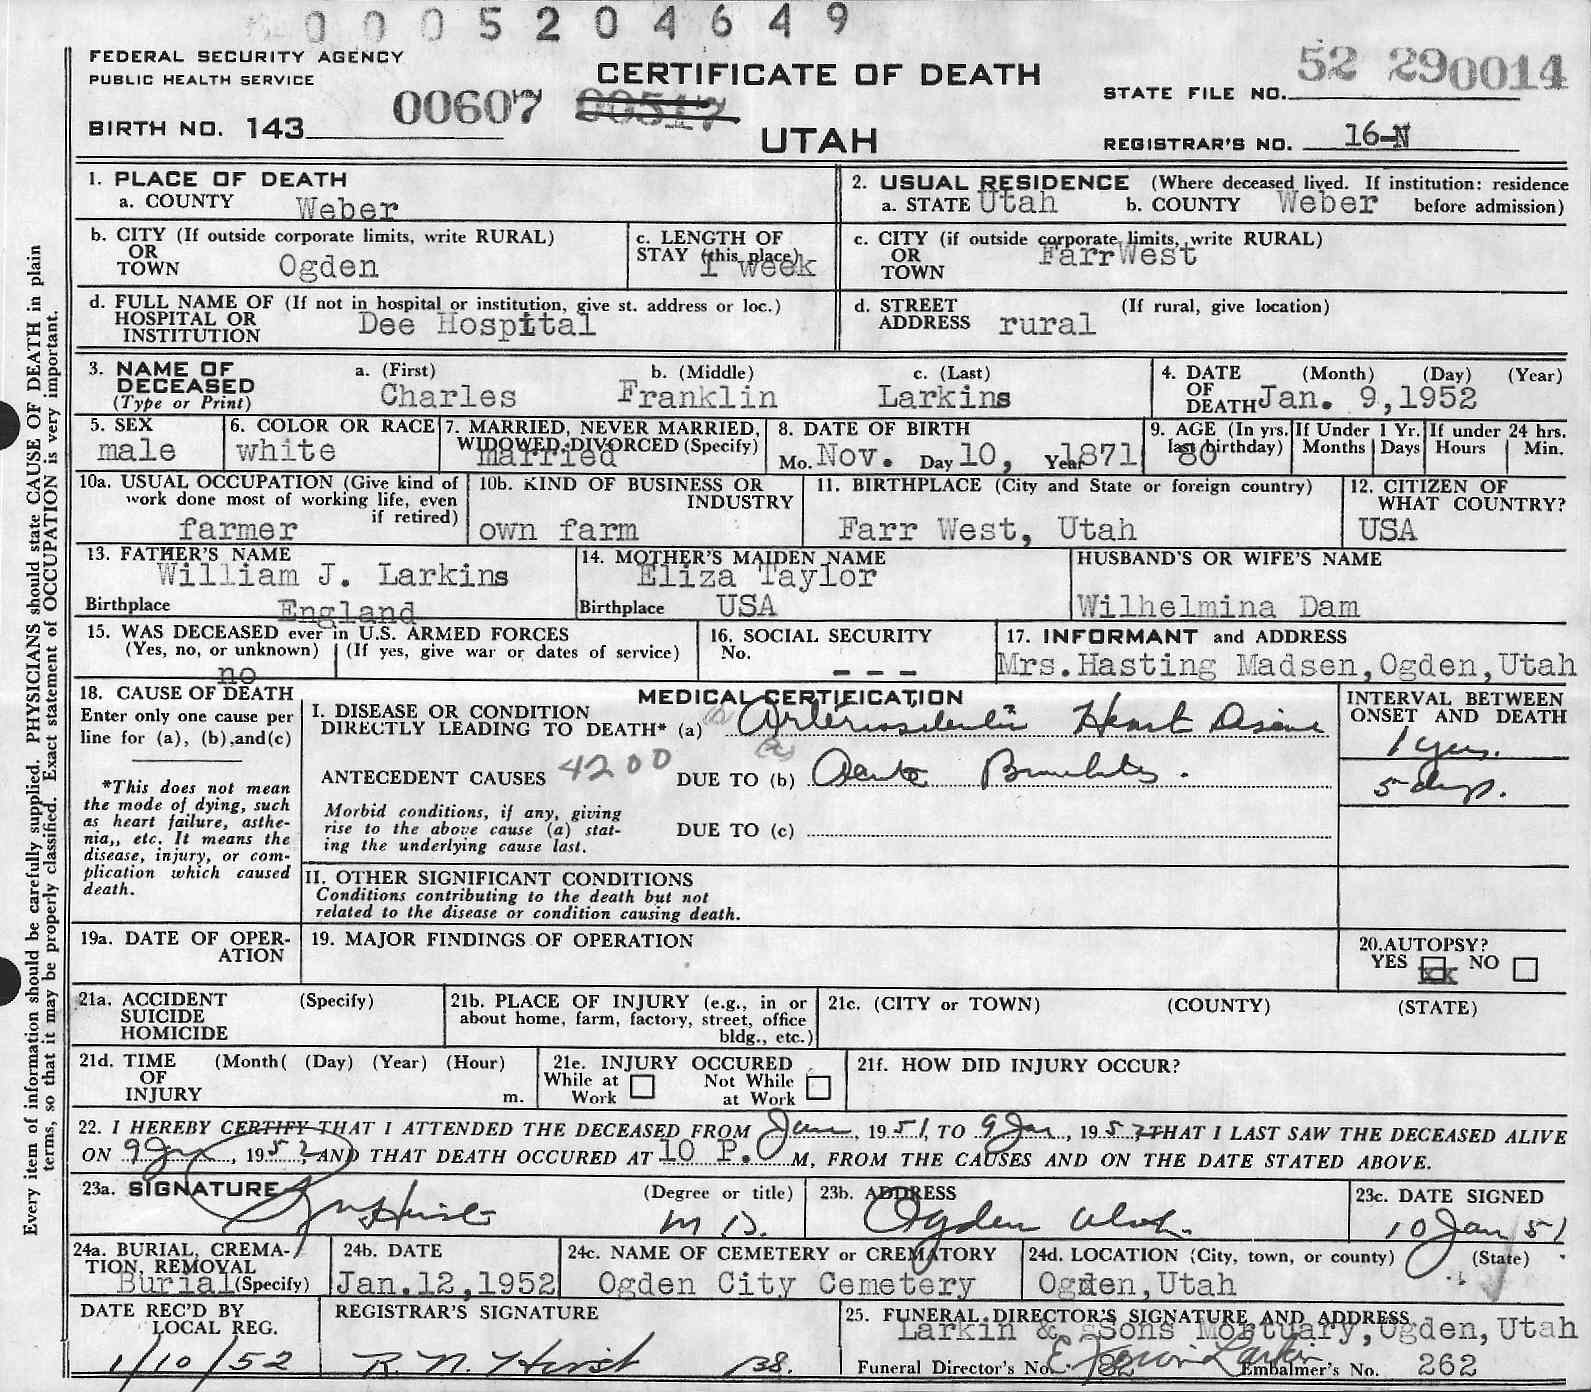 0005204649
FEDERAL SECURITY AGENCY
PUBLIC HEALTH SERVICE
CERTIFICATE OF DEATH
UTAH
STATE FILE NO. 52 290014
BIRTH NO. 143 00607 00517
REGISTRAR'S NO. 16-N
1. PLACE OF DEATH
a. COUNTY Weber
2. USUAL RESIDENCE (Where deceased lived. If institution: residence before admission)
a. STATE Utah b. COUNTY Weber
b. CITY (If outside corporate limits, write RURAL)
OR
TOWN Ogden
c. LENGTH OF
STAY (this place) 1 week
c. CITY (if outside corporate limits, write RURAL)
OR
TOWN FarrWest
d. FULL NAME OF (If not in hospital or institution, give st. address or loc.)
HOSPITAL OR
INSTITUTION Dee Hospital
d. STREET (If rural, give location)
ADDRESS rural
3. NAME OF
DECEASED
(Type or Print)
a. (First) b. (Middle) c. (Last)
Charles Franklin Larkins
4. DATE (Month) (Day) (Year)
OF
DEATH Jan. 9,1952
5. SEX
male
6. COLOR OR RACE
white
7. MARRIED, NEVER MARRIED,
WIDOWED, DIVORCED (Specify)
married
8. DATE OF BIRTH
Mo. Nov. Day 10, Year 1871
9. AGE (In yrs.
last birthday) 80
If Under 1 Yr.
Months Days
If under 24 hrs.
Hours Min.
10a. USUAL OCCUPATION (Give kind of
work done most of working life, even
if retired)
farmer
10b. KIND OF BUSINESS OR
INDUSTRY
own farm
11. BIRTHPLACE (City and State or foreign country)
Farr West, Utah
12. CITIZEN OF
WHAT COUNTRY?
USA
13. FATHER'S NAME
William J. Larkins
Birthplace England
14. MOTHER'S MAIDEN NAME
Eliza Taylor
Birthplace USA
HUSBAND'S OR WIFE'S NAME
Wilhelmina Dam
15. WAS DECEASED ever in U.S. ARMED FORCES
(Yes, no, or unknown) (If yes, give war or dates of service)
no
16. SOCIAL SECURITY
No.
- - -
17. INFORMANT and ADDRESS
Mrs.Hasting Madsen,Ogden,Utah
18. CAUSE OF DEATH
Enter only one cause per
line for (a), (b),and(c)
*This does not mean
the mode of dying, such
as heart failure, asthe-
nia,, etc. It means the
disease, injury, or com-
plication which caused
death.
MEDICAL CERTIFICATION
I. DISEASE OR CONDITION
DIRECTLY LEADING TO DEATH* (a) Arteriosclerotic Heart Disease
ANTECEDENT CAUSES 4200 DUE TO (b) Acute Bronchitis.
Morbid conditions, if any, giving
rise to the above cause (a) stat-
ing the underlying cause last.
DUE TO (c)
INTERVAL BETWEEN
ONSET AND DEATH
1 yrs.
5 days.
II. OTHER SIGNIFICANT CONDITIONS
Conditions contributing to the death but not
related to the disease or condition causing death.
19a. DATE OF OPER-
ATION
19. MAJOR FINDINGS OF OPERATION
20.AUTOPSY?
YES xx NO
21a. ACCIDENT (Specify)
SUICIDE
HOMICIDE
21b. PLACE OF INJURY (e.g., in or
about home, farm, factory, street, office
bldg., etc.)
21c. (CITY or TOWN) (COUNTY) (STATE)
21d. TIME (Month( (Day) (Year) (Hour)
OF
INJURY m.
21e. INJURY OCCURED
While at Work Not While at Work
21f. HOW DID INJURY OCCUR?
22. I HEREBY CERTIFY THAT I ATTENDED THE DECEASED FROM Jan, 1951, TO 9 Jan, 1952, THAT I LAST SAW THE DECEASED ALIVE
ON 9 Jan, 1952, AND THAT DEATH OCCURED AT 10 P. M, FROM THE CAUSES AND ON THE DATE STATED ABOVE.
23a. SIGNATURE (Degree or title)
Hirst M D.
23b. ADDRESS
Ogden Utah.
23c. DATE SIGNED
10 Jan 51
24a. BURIAL, CREMA-
TION, REMOVAL
Burial (Specify)
24b. DATE
Jan.12,1952
24c. NAME OF CEMETERY or CREMATORY
Ogden City Cemetery
24d. LOCATION (City, town, or county) (State)
Ogden,Utah
DATE REC'D BY
LOCAL REG.
1/10/52
REGISTRAR'S SIGNATURE
R. N. Hirst
25. FUNERAL DIRECTOR'S SIGNATURE AND ADDRESS
Larkin & Sons Mortuary,Ogden,Utah
Funeral Director's No. Larkin Embalmer's No. 262
Every item of information should be carefully supplied. PHYSICIANS should state CAUSE OF DEATH in plain
terms, so that it may be properly classified. Exact statement of OCCUPATION is very important.